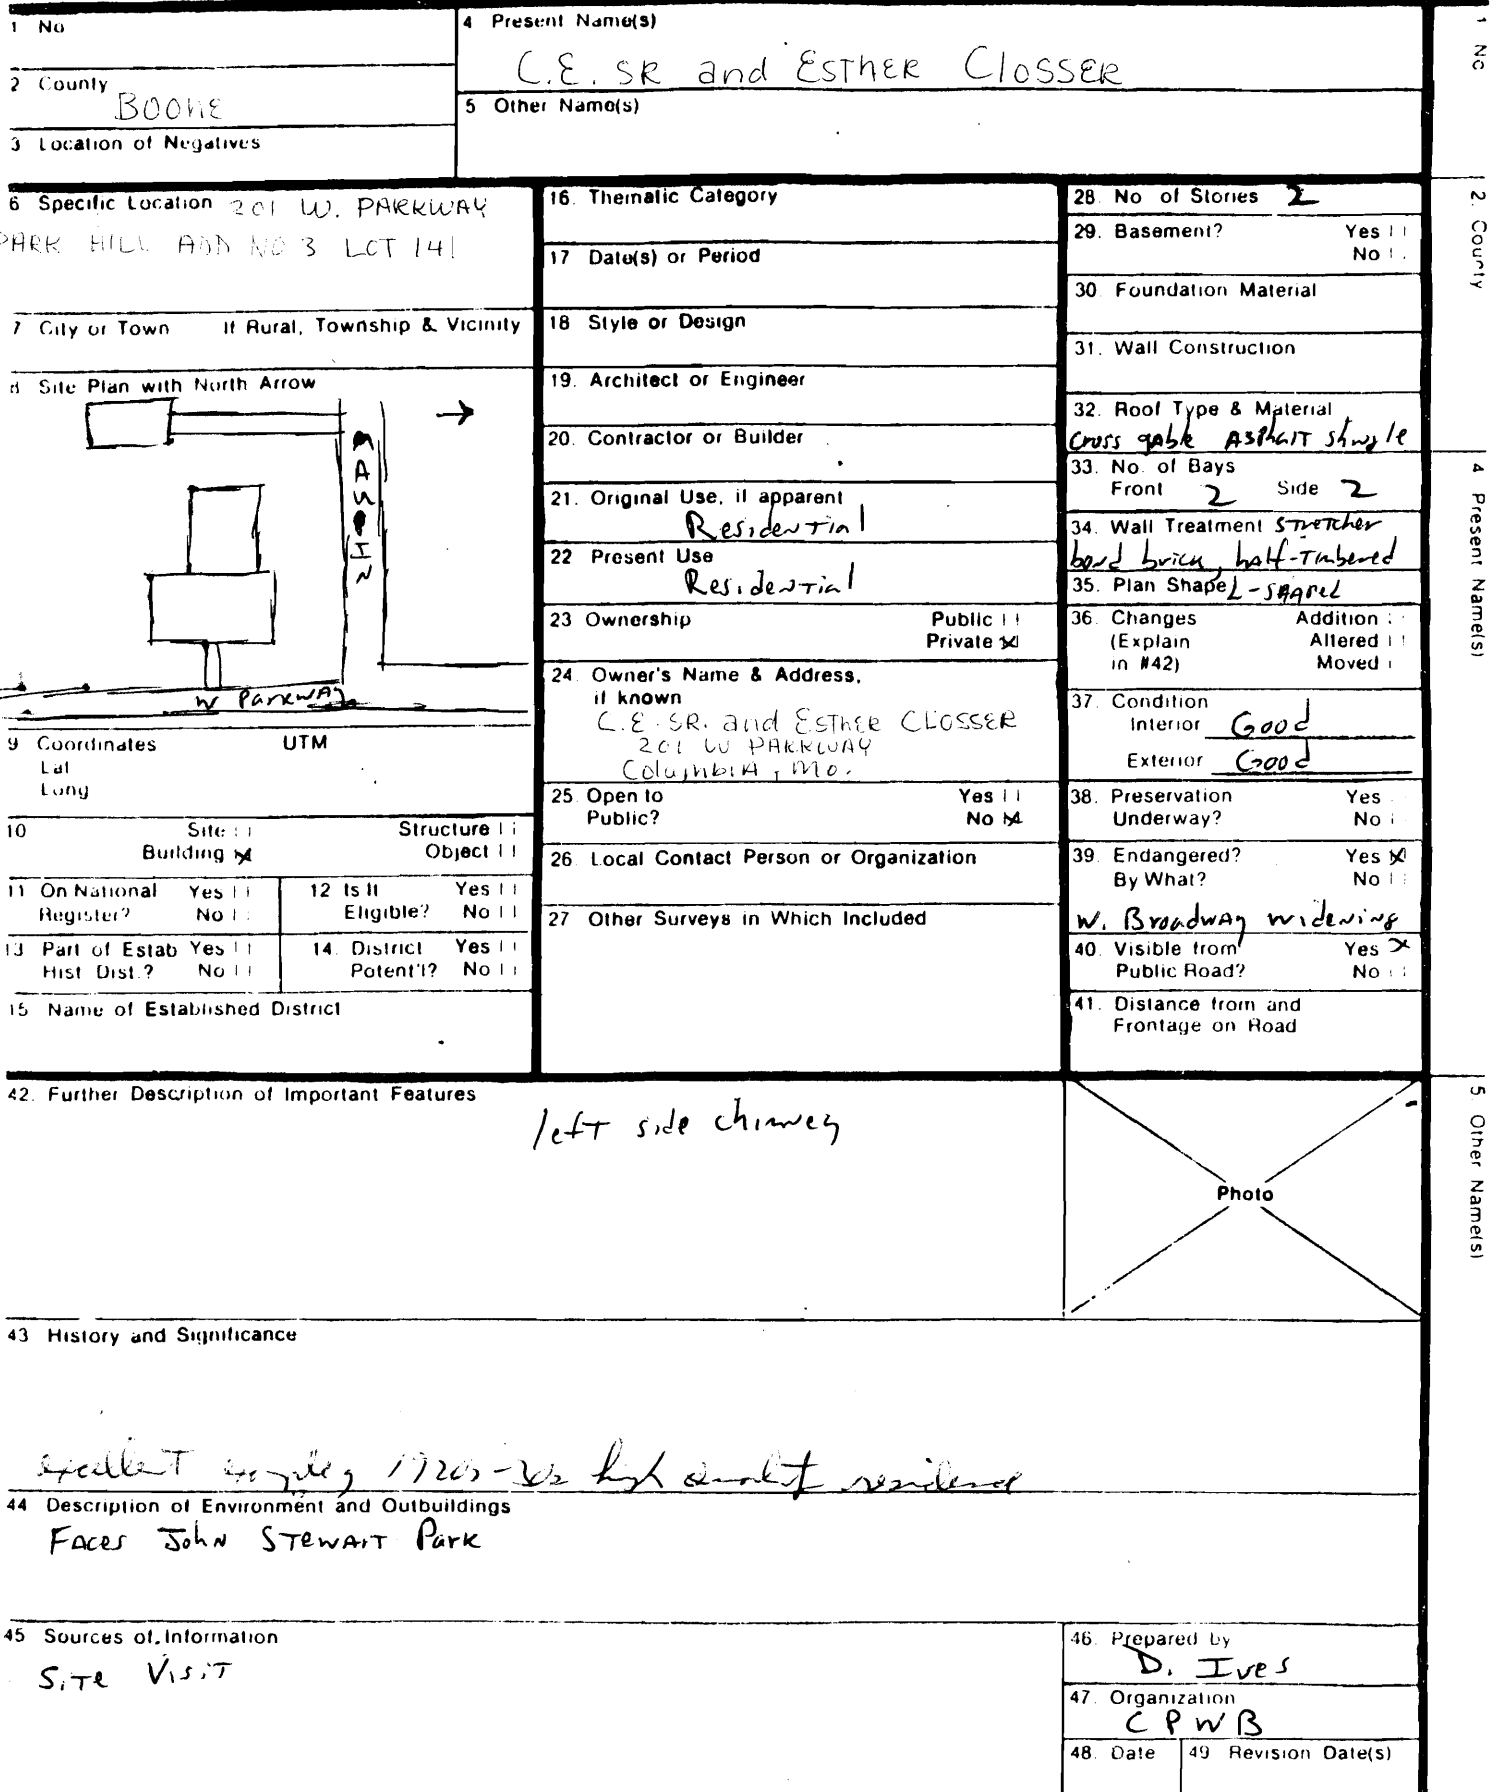 1 No
4 Present Name(s)
C.E. SR and ESTHER CLOSSER
2 County
BOONE
5 Other Name(s)
3 Location of Negatives
6 Specific Location 201 W. PARKWAY
PARK HILL ADD NO 3 LOT 141
7 City or Town If Rural, Township & Vicinity
8 Site Plan with North Arrow
W Parkway
9 Coordinates UTM
Lat
Long
10 Site
Structure
Building
Object
11 On National Register? Yes No
12 Is It Eligible? Yes No
13 Part of Estab Hist Dist.? Yes No
14. District Potent'l? Yes No
15 Name of Established District
16. Thematic Category
17 Date(s) or Period
18 Style or Design
19. Architect or Engineer
20. Contractor or Builder
21. Original Use, if apparent
Residential
22 Present Use
Residential
23 Ownership Public
Private
24. Owner's Name & Address,
if known
C.E. SR. and ESTHER CLOSSER
201 W PARKWAY
Columbia, Mo.
25. Open to Yes
Public? No
26. Local Contact Person or Organization
27 Other Surveys in Which Included
28. No of Stories 2
29. Basement? Yes
No
30. Foundation Material
31. Wall Construction
32. Roof Type & Material
Cross gable Asphalt shingle
33. No. of Bays
Front 2 Side 2
34. Wall Treatment Stretcher
bond brick, half-Timbered
35. Plan Shape L-shaped
36. Changes Addition
(Explain Altered
in #42) Moved
37. Condition
Interior Good
Exterior Good
38. Preservation Yes
Underway? No
39. Endangered? Yes
By What? No
W. Broadway widening
40. Visible from Yes
Public Road? No
41. Distance from and
Frontage on Road
42. Further Description of Important Features
left side chimney
Photo
43 History and Significance
excellent example of 1920s-30s high quality residence
44 Description of Environment and Outbuildings
Faces John Stewart Park
45 Sources of Information
Site Visit
46. Prepared by
D. Ives
47. Organization
CPWB
48. Date
49 Revision Date(s)
1 No
2. County
4 Present Name(s)
5. Other Name(s)